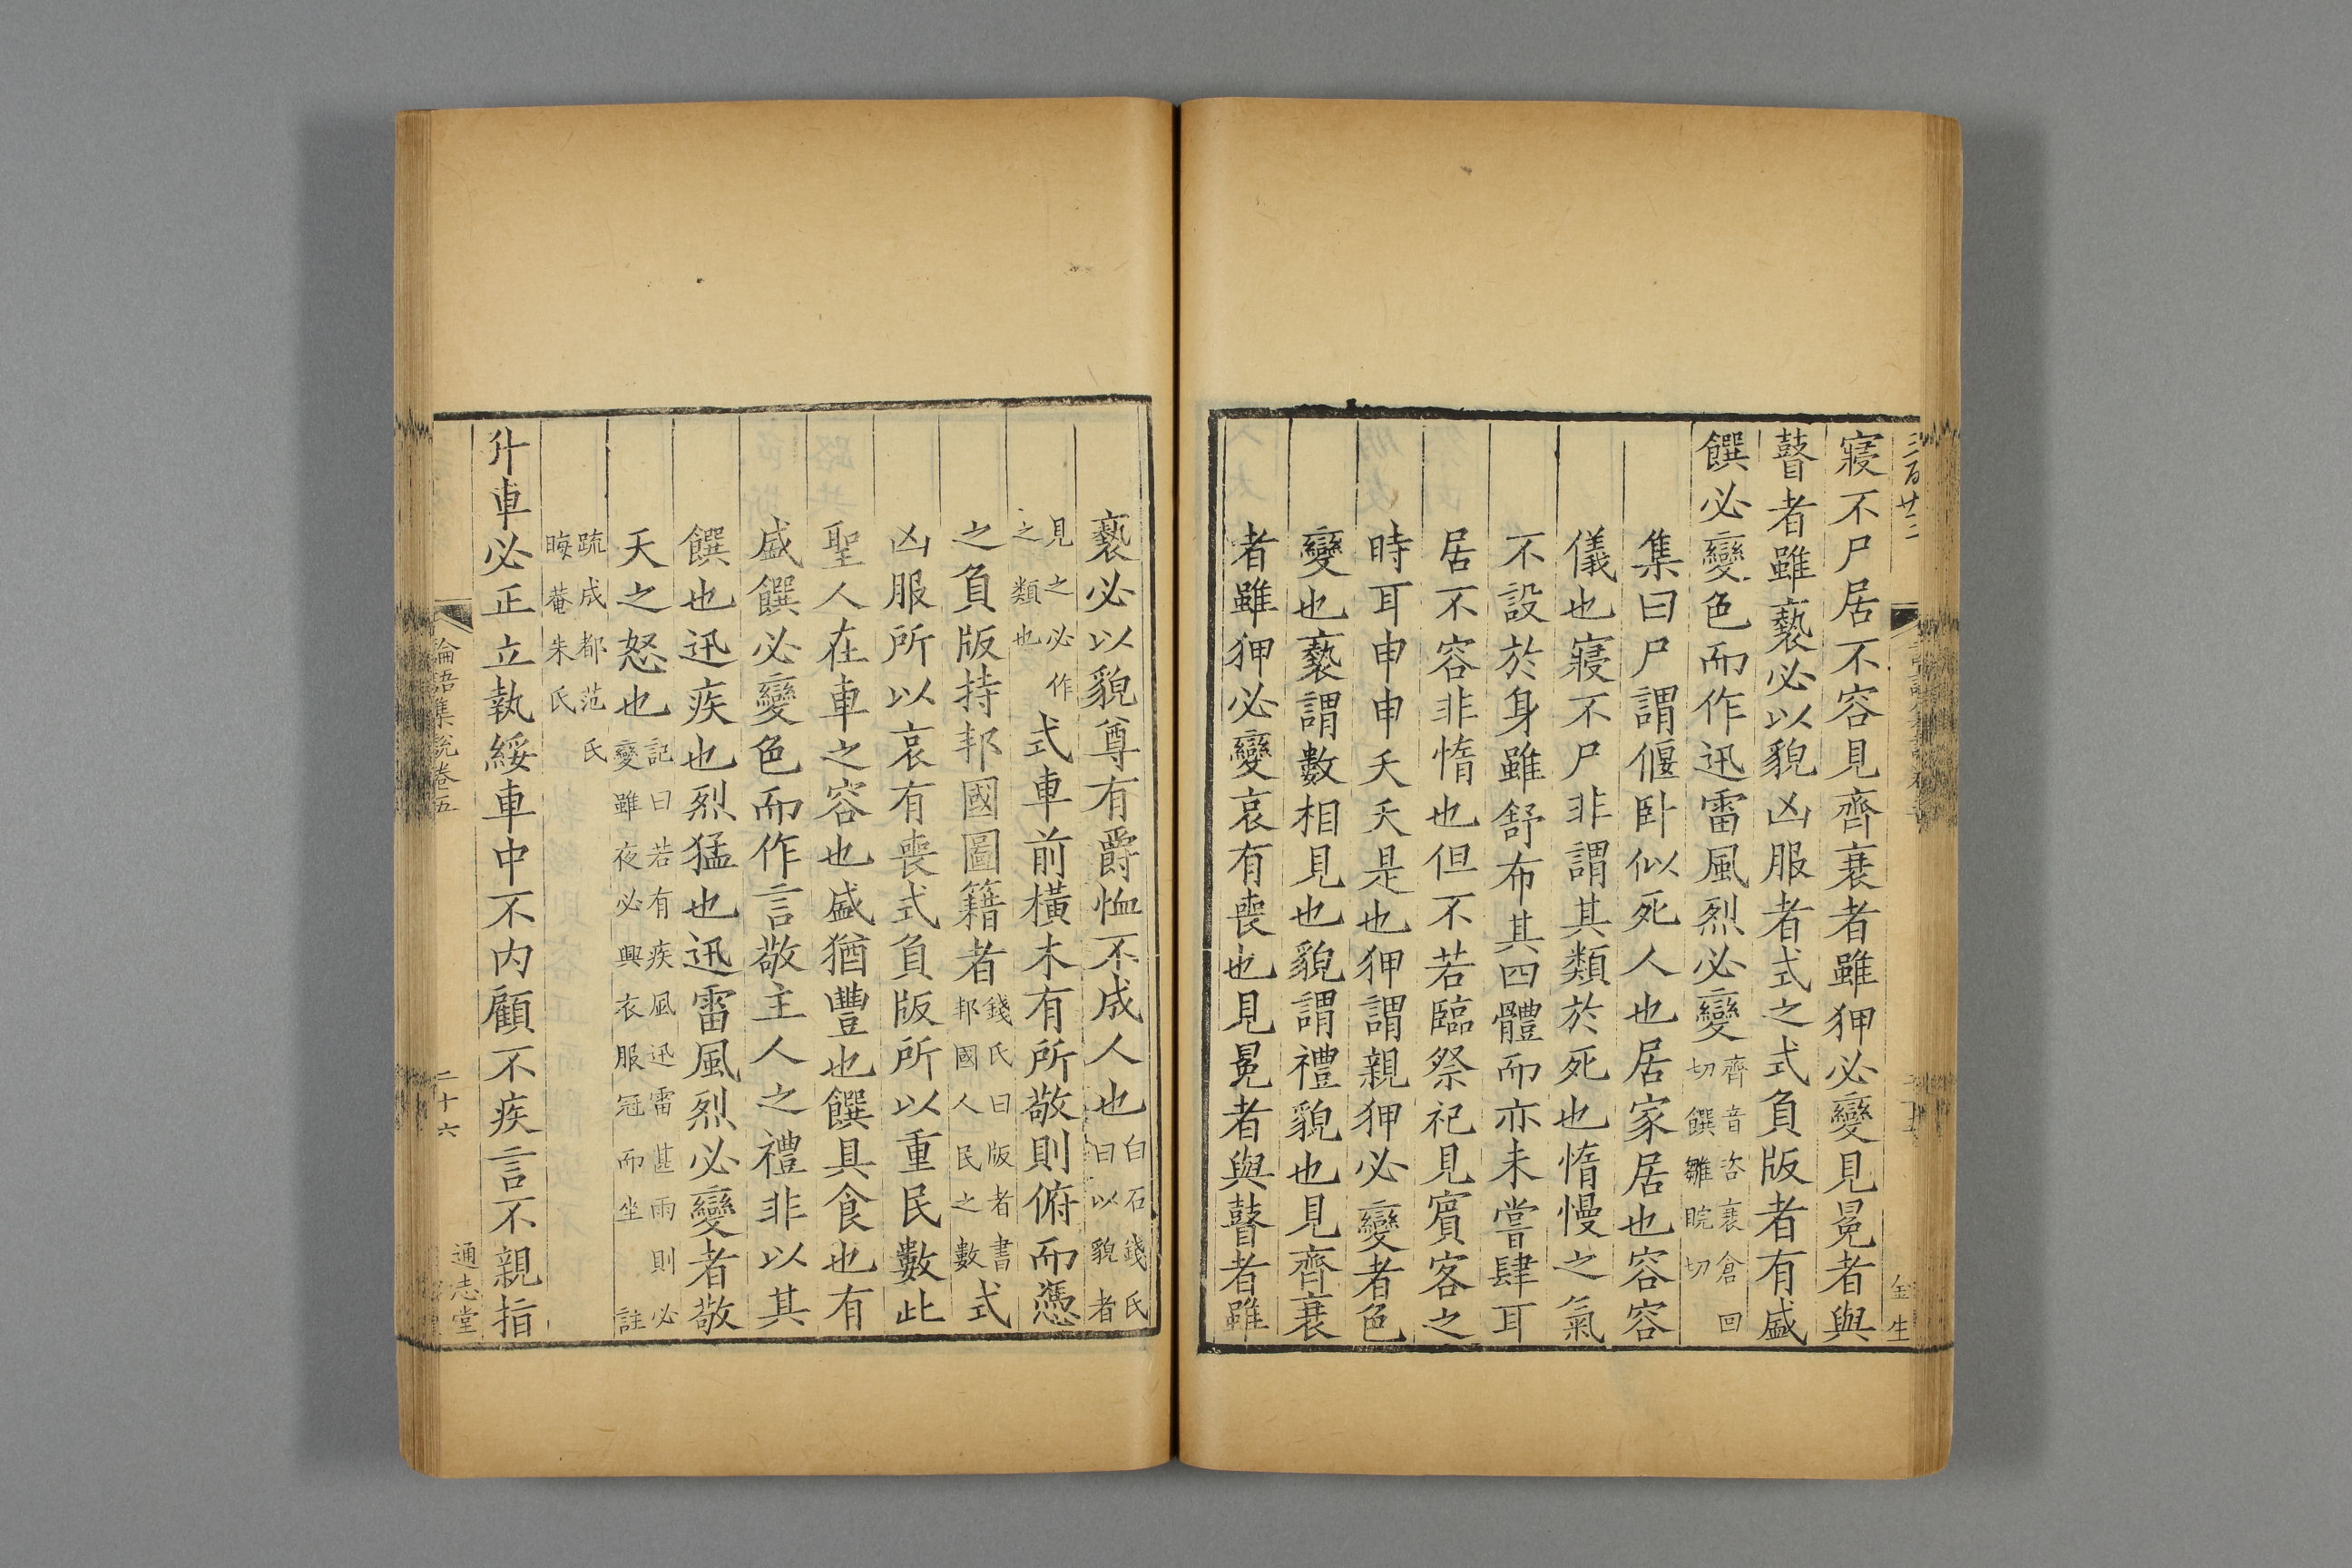 三百廿二
金生
寢不尸居不容見齊衰者雖狎必變見冕者與
瞽者雖褻必以貌凶服者式之式負版者有盛
饌必變色而作迅雷風烈必變齊音咨衰倉回切饌雛睆切
集曰尸謂偃卧似死人也居家居也容容
儀也寢不尸非謂其類於死也惰慢之氣
不設於身雖舒布其四體而亦未嘗肆耳
居不容非惰也但不若臨祭祀見賓客之
時耳申申夭夭是也狎謂親狎必變者色
變也褻謂數相見也貌謂禮貌也見齊衰
者雖狎必變哀有喪也見冕者與瞽者雖
褻必以貌尊有爵恤不成人也白石錢氏曰以貌者
見之必作之類也式車前橫木有所敬則俯而憑
之負版持邦國圖籍者錢氏曰版者書邦國人民之數式
凶服所以哀有喪式負版所以重民數此
聖人在車之容也盛猶豐也饌具食也有
盛饌必變色而作言敬主人之禮非以其
饌也迅疾也烈猛也迅雷風烈必變者敬
天之怒也記曰若有疾風迅雷甚雨則必變雖夜必興衣服冠而坐註
疏成都范氏晦菴朱氏
升車必正立執綏車中不内顧不疾言不親指
論語集說卷五
二十六
通志堂